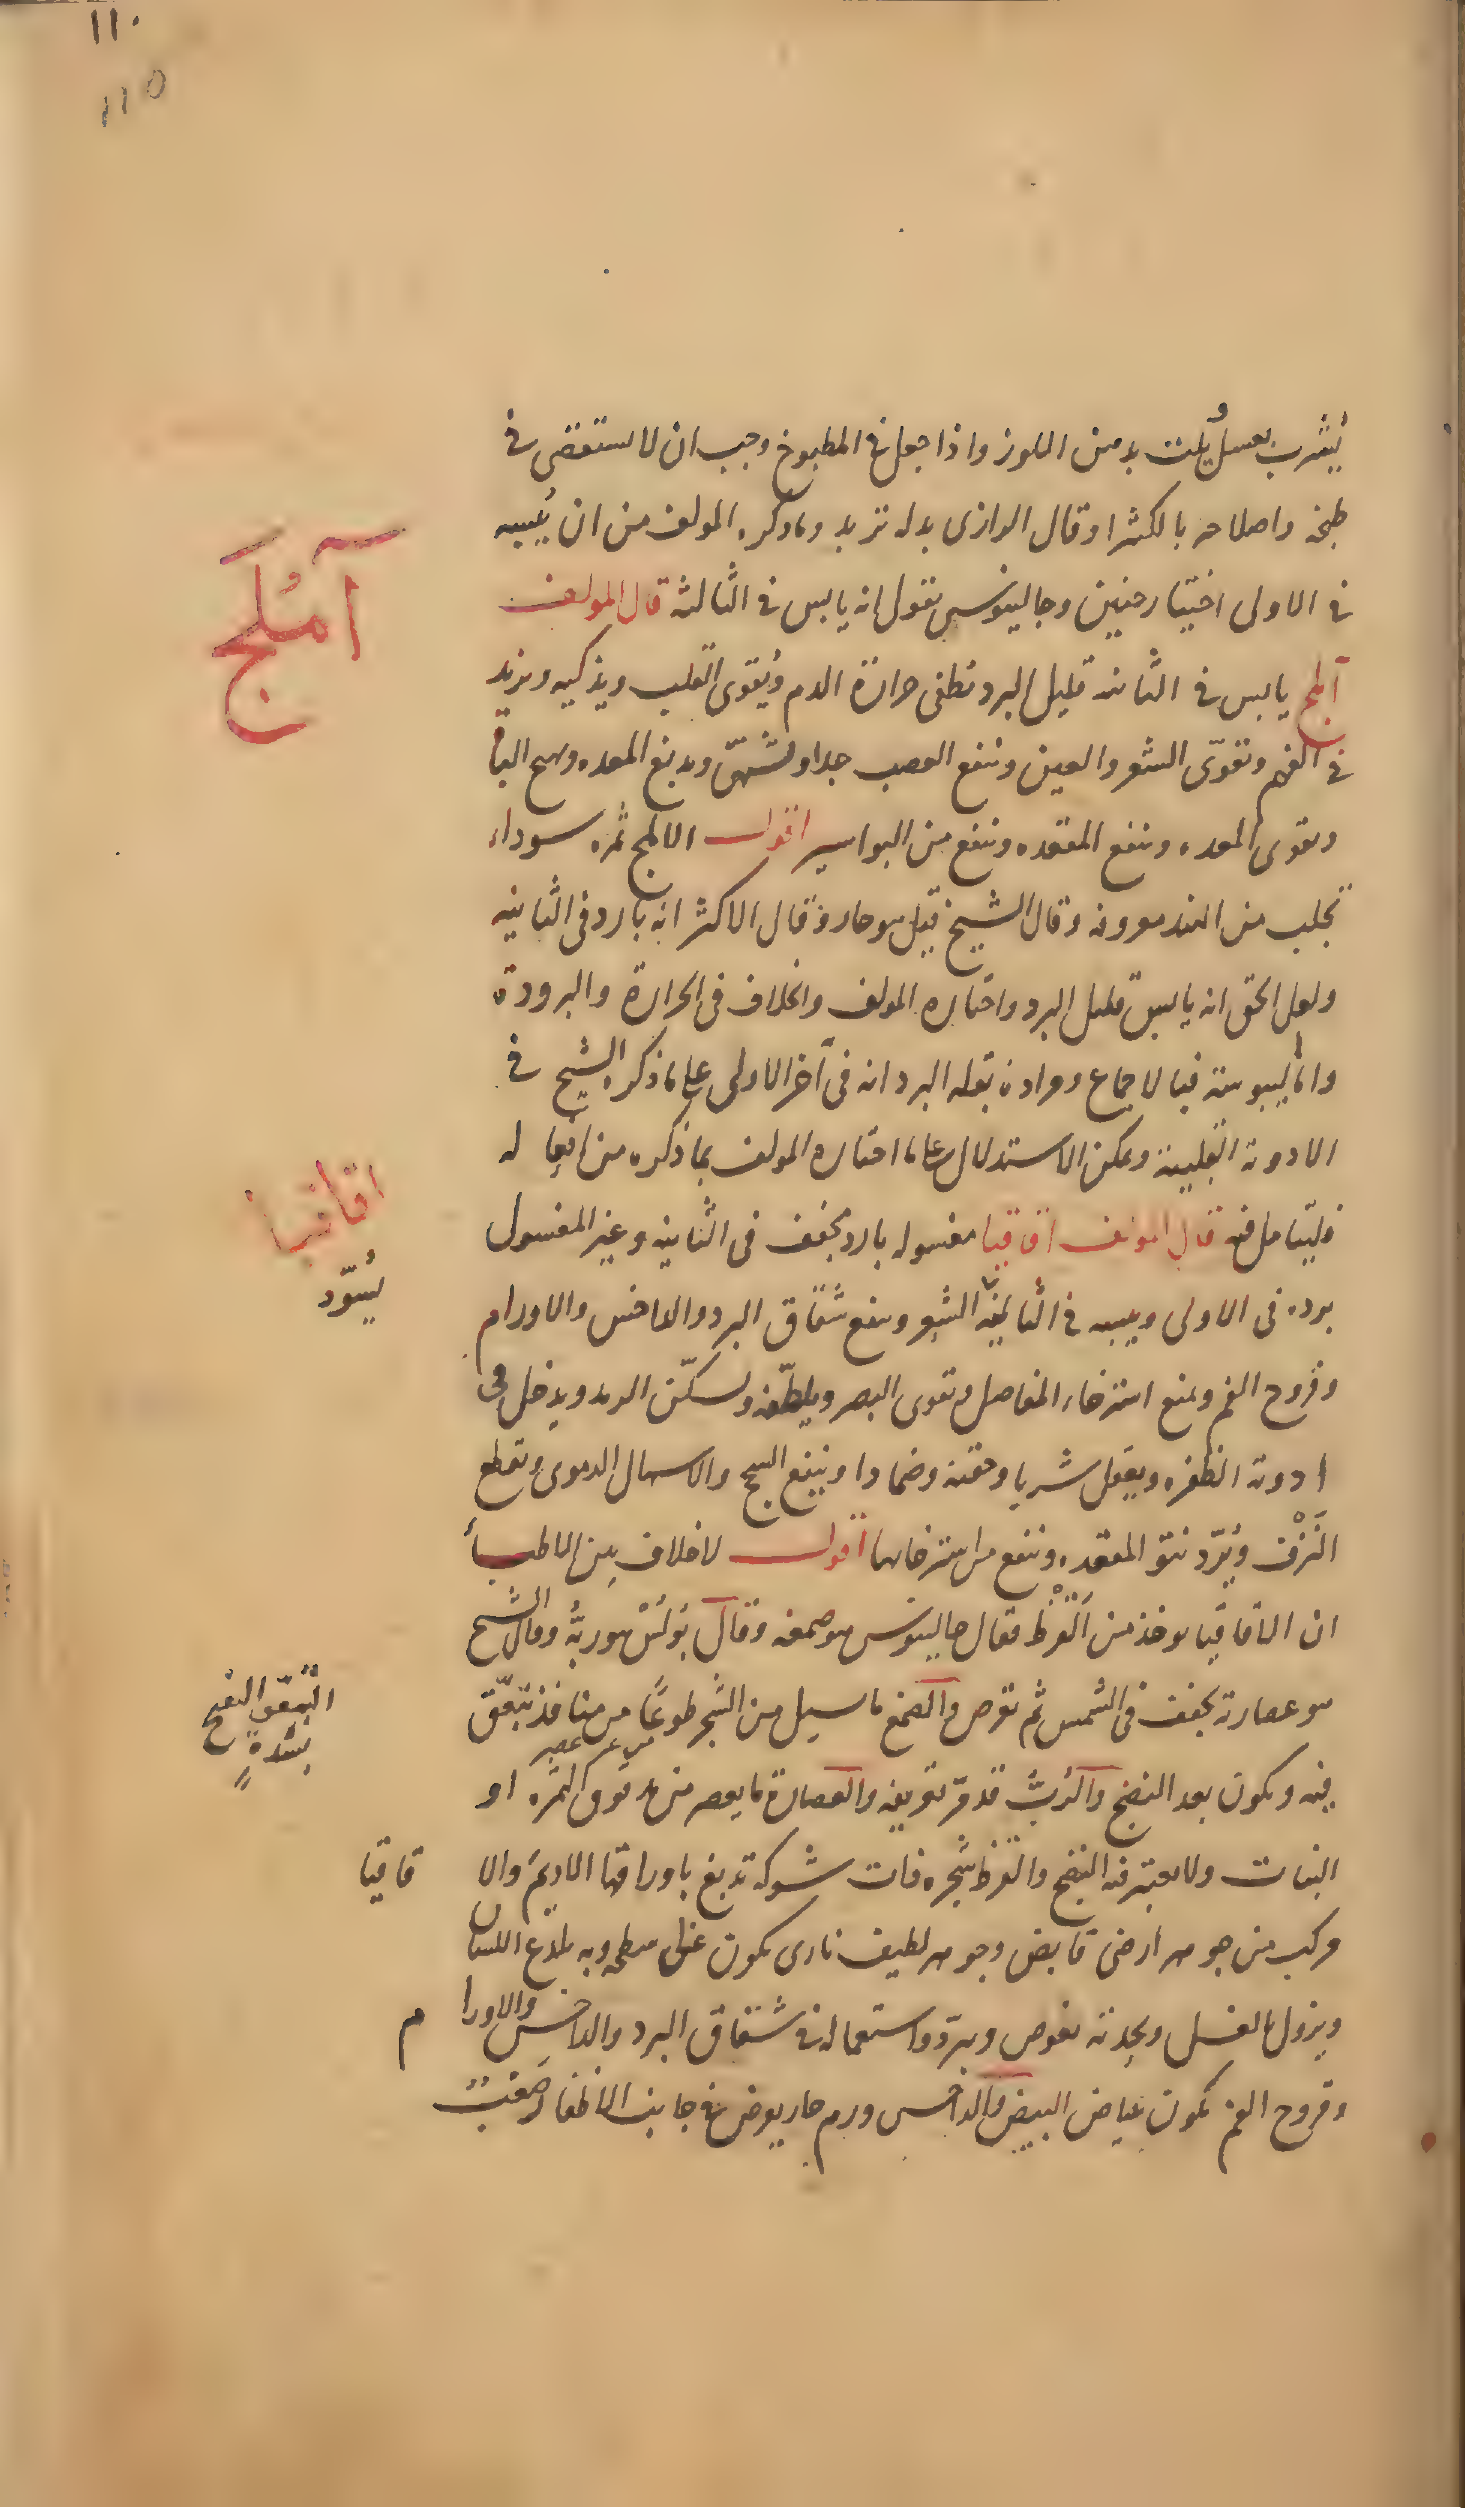 ١١٠
١١٥
يُشرب بعسل ويُلت بدهن اللوز واذا جعل فى المطبوخ وجب ان لا يستقصى فى
طبخه واصلاحه بالكثيرا وقال الرازى بدله تربد وما ذكره المولف من ان يُبسه
فى الاولى اختيار حنين وجالينوس يقول انه يابس فى الثالثة قال المولف
آملج
آملج يابس فى الثانيه قليل البرد يطفى حرارة الدم ويُقوى القلب ويذكيه ويزيد
فى الفهم ويقوّى الشعر والعين وينفع العصب جدا ويُشهّى ويدبغ المعده ويهيج الباه
ويقوى المعده وينفع المقعده وينفع من البواسير اقول الاملج ثمره سوداء
تجلب من الهند معروفه وقال الشيخ قيل هو حار وقال الاكثر انه بارد فى الثانيه
ولعل الحق انه يابس قليل البرد واختاره المولف والخلاف فى الحرارة والبرودة
واما اليبوسة فبالاجماع ومراده بقله البرد انه فى آخر الاولى على ما ذكره الشيخ فى
الادوية القلبية ويمكن الاستدلال على ما اختاره المولف بما ذكره من افعاله
اقاقيا
فليتامل فيه قال المولف اقاقيا مغسوله بارد مجفف فى الثانيه وغير المغسول
يُسوّد
برده فى الاولى ويبسه فى الثانية الشعر وينفع شقاق البرد والداحس والاورام
وقروح الفم ويمنع استرخاء المفاصل ويقوى البصر ويلطّفه ويسكّن الرمد ويدخل فى
ادوية الظفره ويعقل شربا وحقنه وضمادا وينفع السحج والاسهال الدموى ويقطع
النَزْف ويُردّ نتو المقعده وينفع من استرخايها اقول لا خلاف بين الاطبأ
ان الاقاقيا يوخذ من القَرَظ فقال جالينوس هو صمغه وقال بُولُسْ هو ربُّه وقال الشيخ
هو عصارة يجفف فى الشمس ثم تقرص والصمغ ما يسيل من الشجر طوعًا من منافذ تتبعّق
التبعّق
بشدةٍ
من غير عصر
فيه ويكون بعد النضج والرُبّ قد مرّ تعريفه والعصارة ما يعصر من مدقوق الثمره او
النبات ولا يعتبر فيه النضج والقرظ شجره ذات شوكه تدبغ باوراقها الاديم والاقاقيا
مركب من جوهر ارضى قابض وجوهر لطيف نارى يكون على سطحه وبه يلذع اللسان
ويزول بالغسل ويحدته يغوص ويبرّد واستعماله فى شقاق البرد والداحس والاورام
وقروح الفم يكون ببياض البيض والداحس ورم حار يعرض فى جانب الاظفار